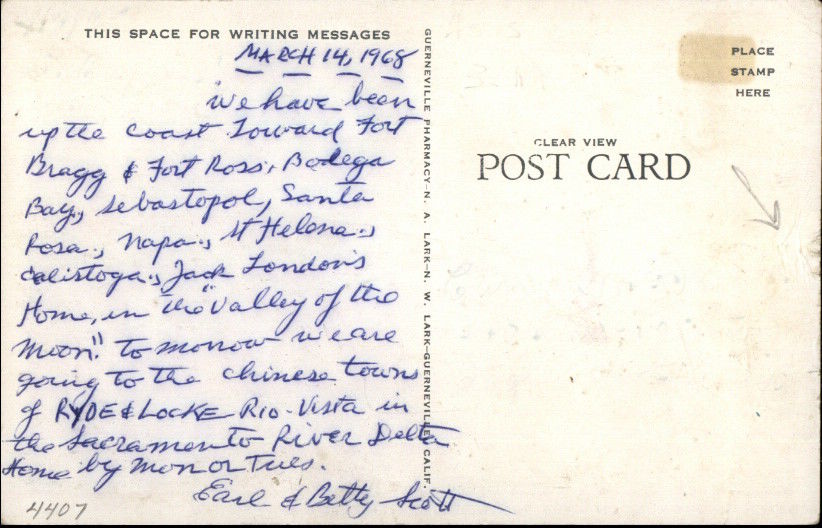 THIS SPACE FOR WRITING MESSAGES
MARCH 14, 1968
We have been
up the coast Toward Fort
Bragg & Fort Ross, Bodega
Bay, Sebastopol, Santa
Rosa, Napa, St Helena,
Calistoga, Jack London's
Home, in the "Valley of the
Moon". Tomorrow we are
going to the chinese towns
of RYDE & LOCKE Rio-Vista in
the Sacramento River Delta
Home by Mon or Tues.
Earl & Betty Scott
4407
GUERNEVILLE PHARMACY—N. A. LARK—N. W. LARK—GUERNEVILLE, CALIF.
PLACE
STAMP
HERE
CLEAR VIEW
POST CARD